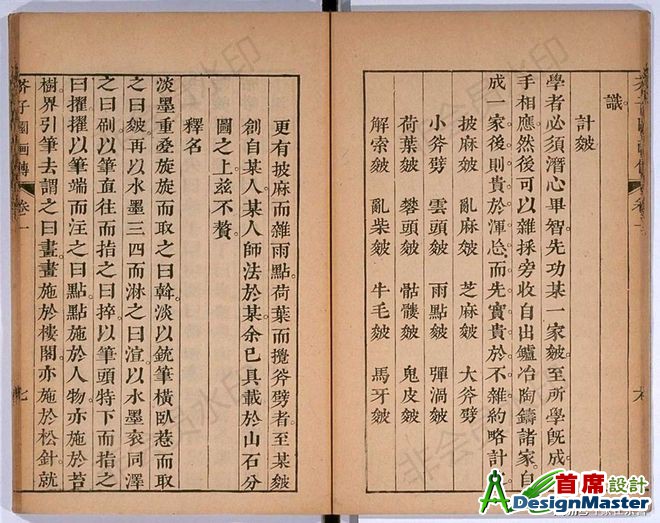 識
計皴
學者必須潛心畢智先功某一家皴至所學旣成心
手相應然後可以雜採旁收自出鑪冶陶鑄諸家自
成一家後則貴於渾忘而先實貴於不雜約略計之
披麻皴 亂麻皴 芝麻皴 大斧劈
小斧劈 雲頭皴 雨點皴 彈渦皴
荷葉皴 礬頭皴 骷髏皴 鬼皮皴
解索皴 亂柴皴 牛毛皴 馬牙皴
更有披麻而雜雨點荷葉而攪斧劈者至某皴
創自某人某人師法於某余已具載於山石分
圖之上茲不贅
釋名
淡墨重疊旋旋而取之曰斡淡以銳筆橫臥惹而取
之曰皴再以水墨三四而淋之曰渲以水墨衮同澤
之曰刷以筆直往而指之曰捽以筆頭特下而指之
曰擢擢以筆端而注之曰點點施於人物亦施於苔
樹界引筆去謂之曰畫畫施於樓閣亦施於松針就
芥子園畫傳 卷一
首席設計
ADesignMaster
非会员水印